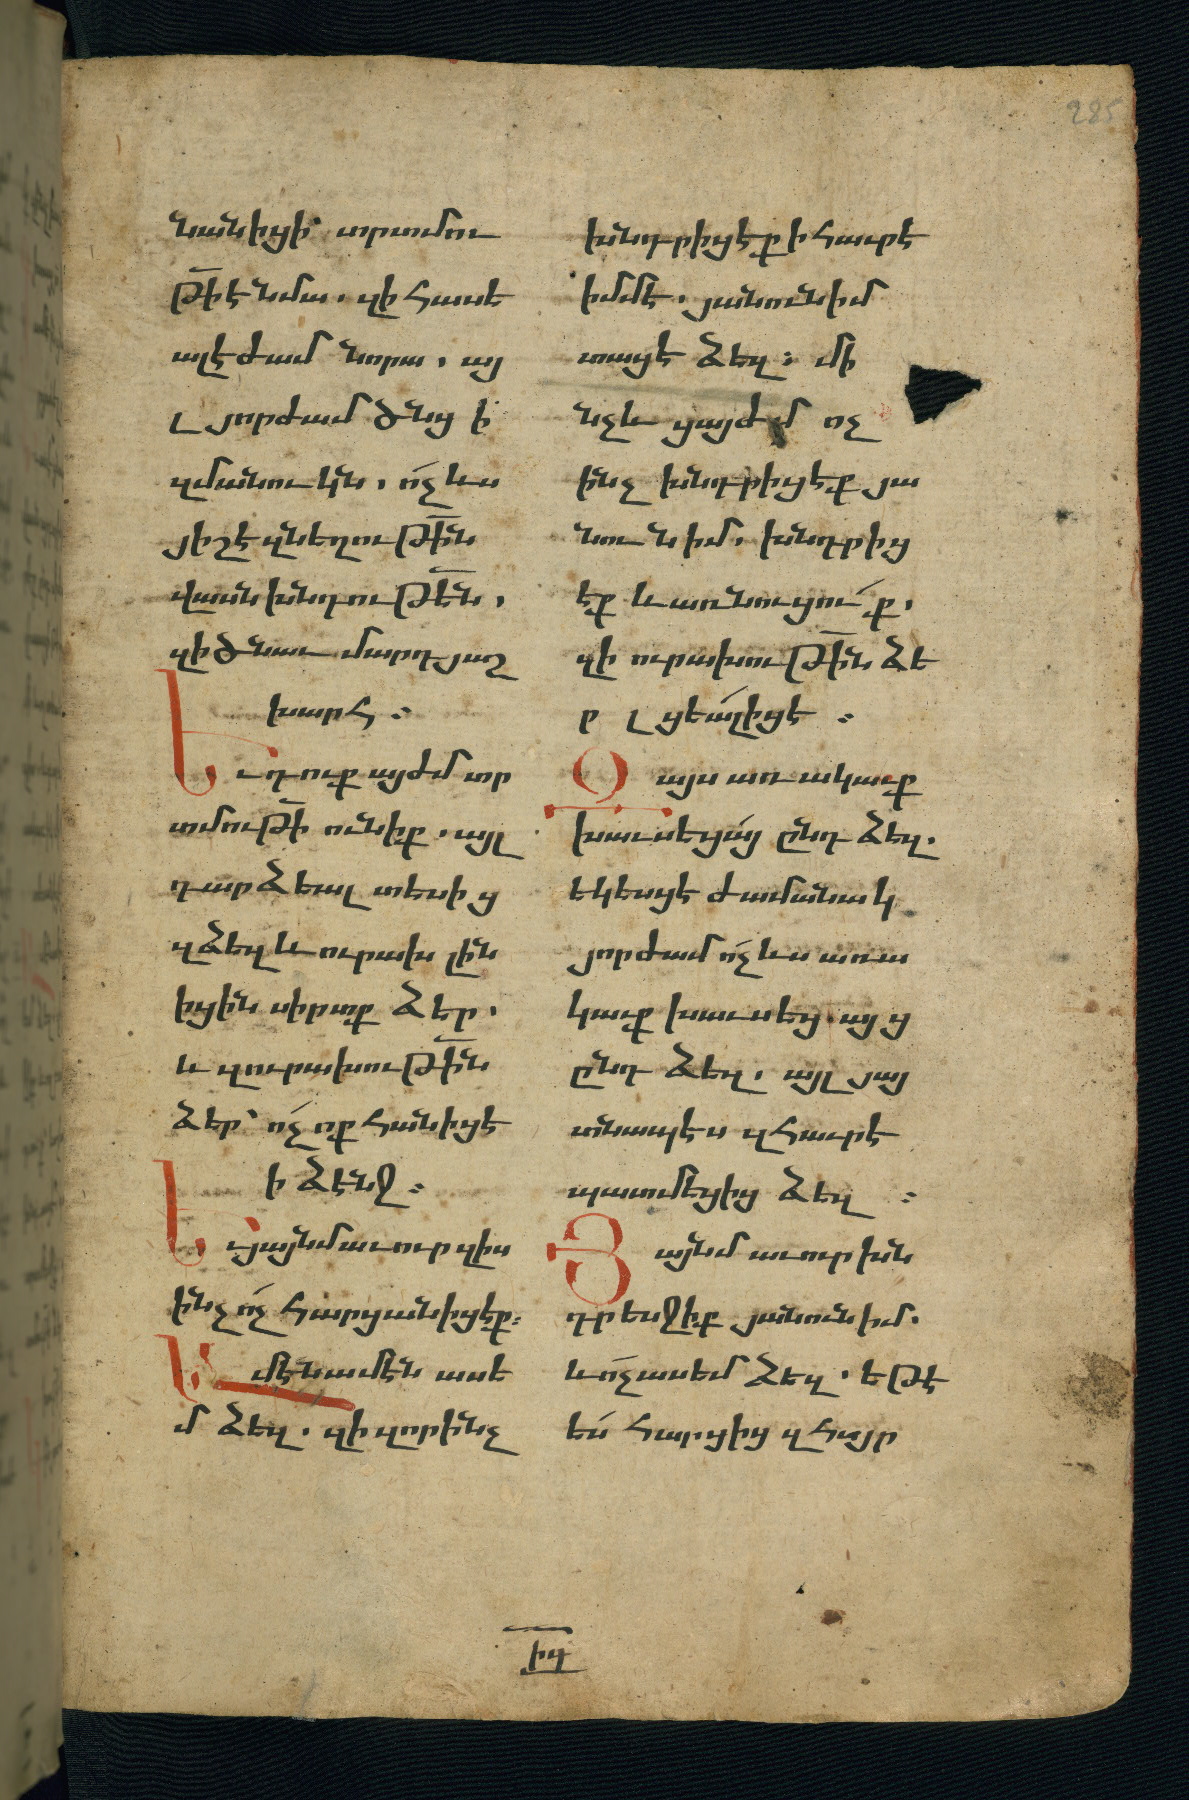 285
նանիցի՝ տրտմու
թի է նմա. զի հասե
ալ է ժամ նորա. այ
լ յորժամ ծնցի
զմանուկն. ոչ ևս
յիշէ զնեղութին
վասն խնդութեն.
զի ծնաւ մարդ յաշ
խարհ։
Եւ դուք այժմ տր
տմութի ունիք. այլ
դարձեալ տեսից
զձեզ և ուրախ լին
իցին սիրտք ձեր.
և զուրախութին
ձեր՝ ոչ ոք հանիցե
ի ձէնջ։
Եւ յայնմ աւուր զիս
ինչ ոչ հարցանիցէք։
Ամէն ամէն ասե
մ ձեզ. զի զոր ինչ
խնդրիցէք ի հաւրէ
իմմէ. յանուն իմ
տացե ձեզ։ մի
նչև ցայժմ ոչ
ինչ խնդրիցէք յա
նուն իմ. խնդրից
էք և առնուցուք.
զի ուրախութին ձե
ր լցեալ իցէ ։
Զայս առակաւք
խաւսեցայ ընդ ձեզ.
եկեսցէ ժամանակ
յորժամ ոչ ևս առա
կաւք խաւսեցայց
ընդ ձեզ. այլ յայ
տնապէս զհաւրէ
պատմեցից ձեզ ։
Յայնմ աւուր խն
դրեսջիք յանուն իմ.
և ոչ ասեմ ձեզ. եթէ
ես հարցից զհայր
իդ